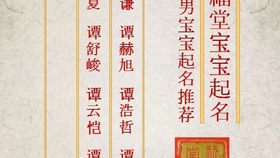 福堂宝宝起名
男宝宝起名推荐
谦 谭赫旭 谭浩哲 谭
夏 谭舒峻 谭云恺 谭